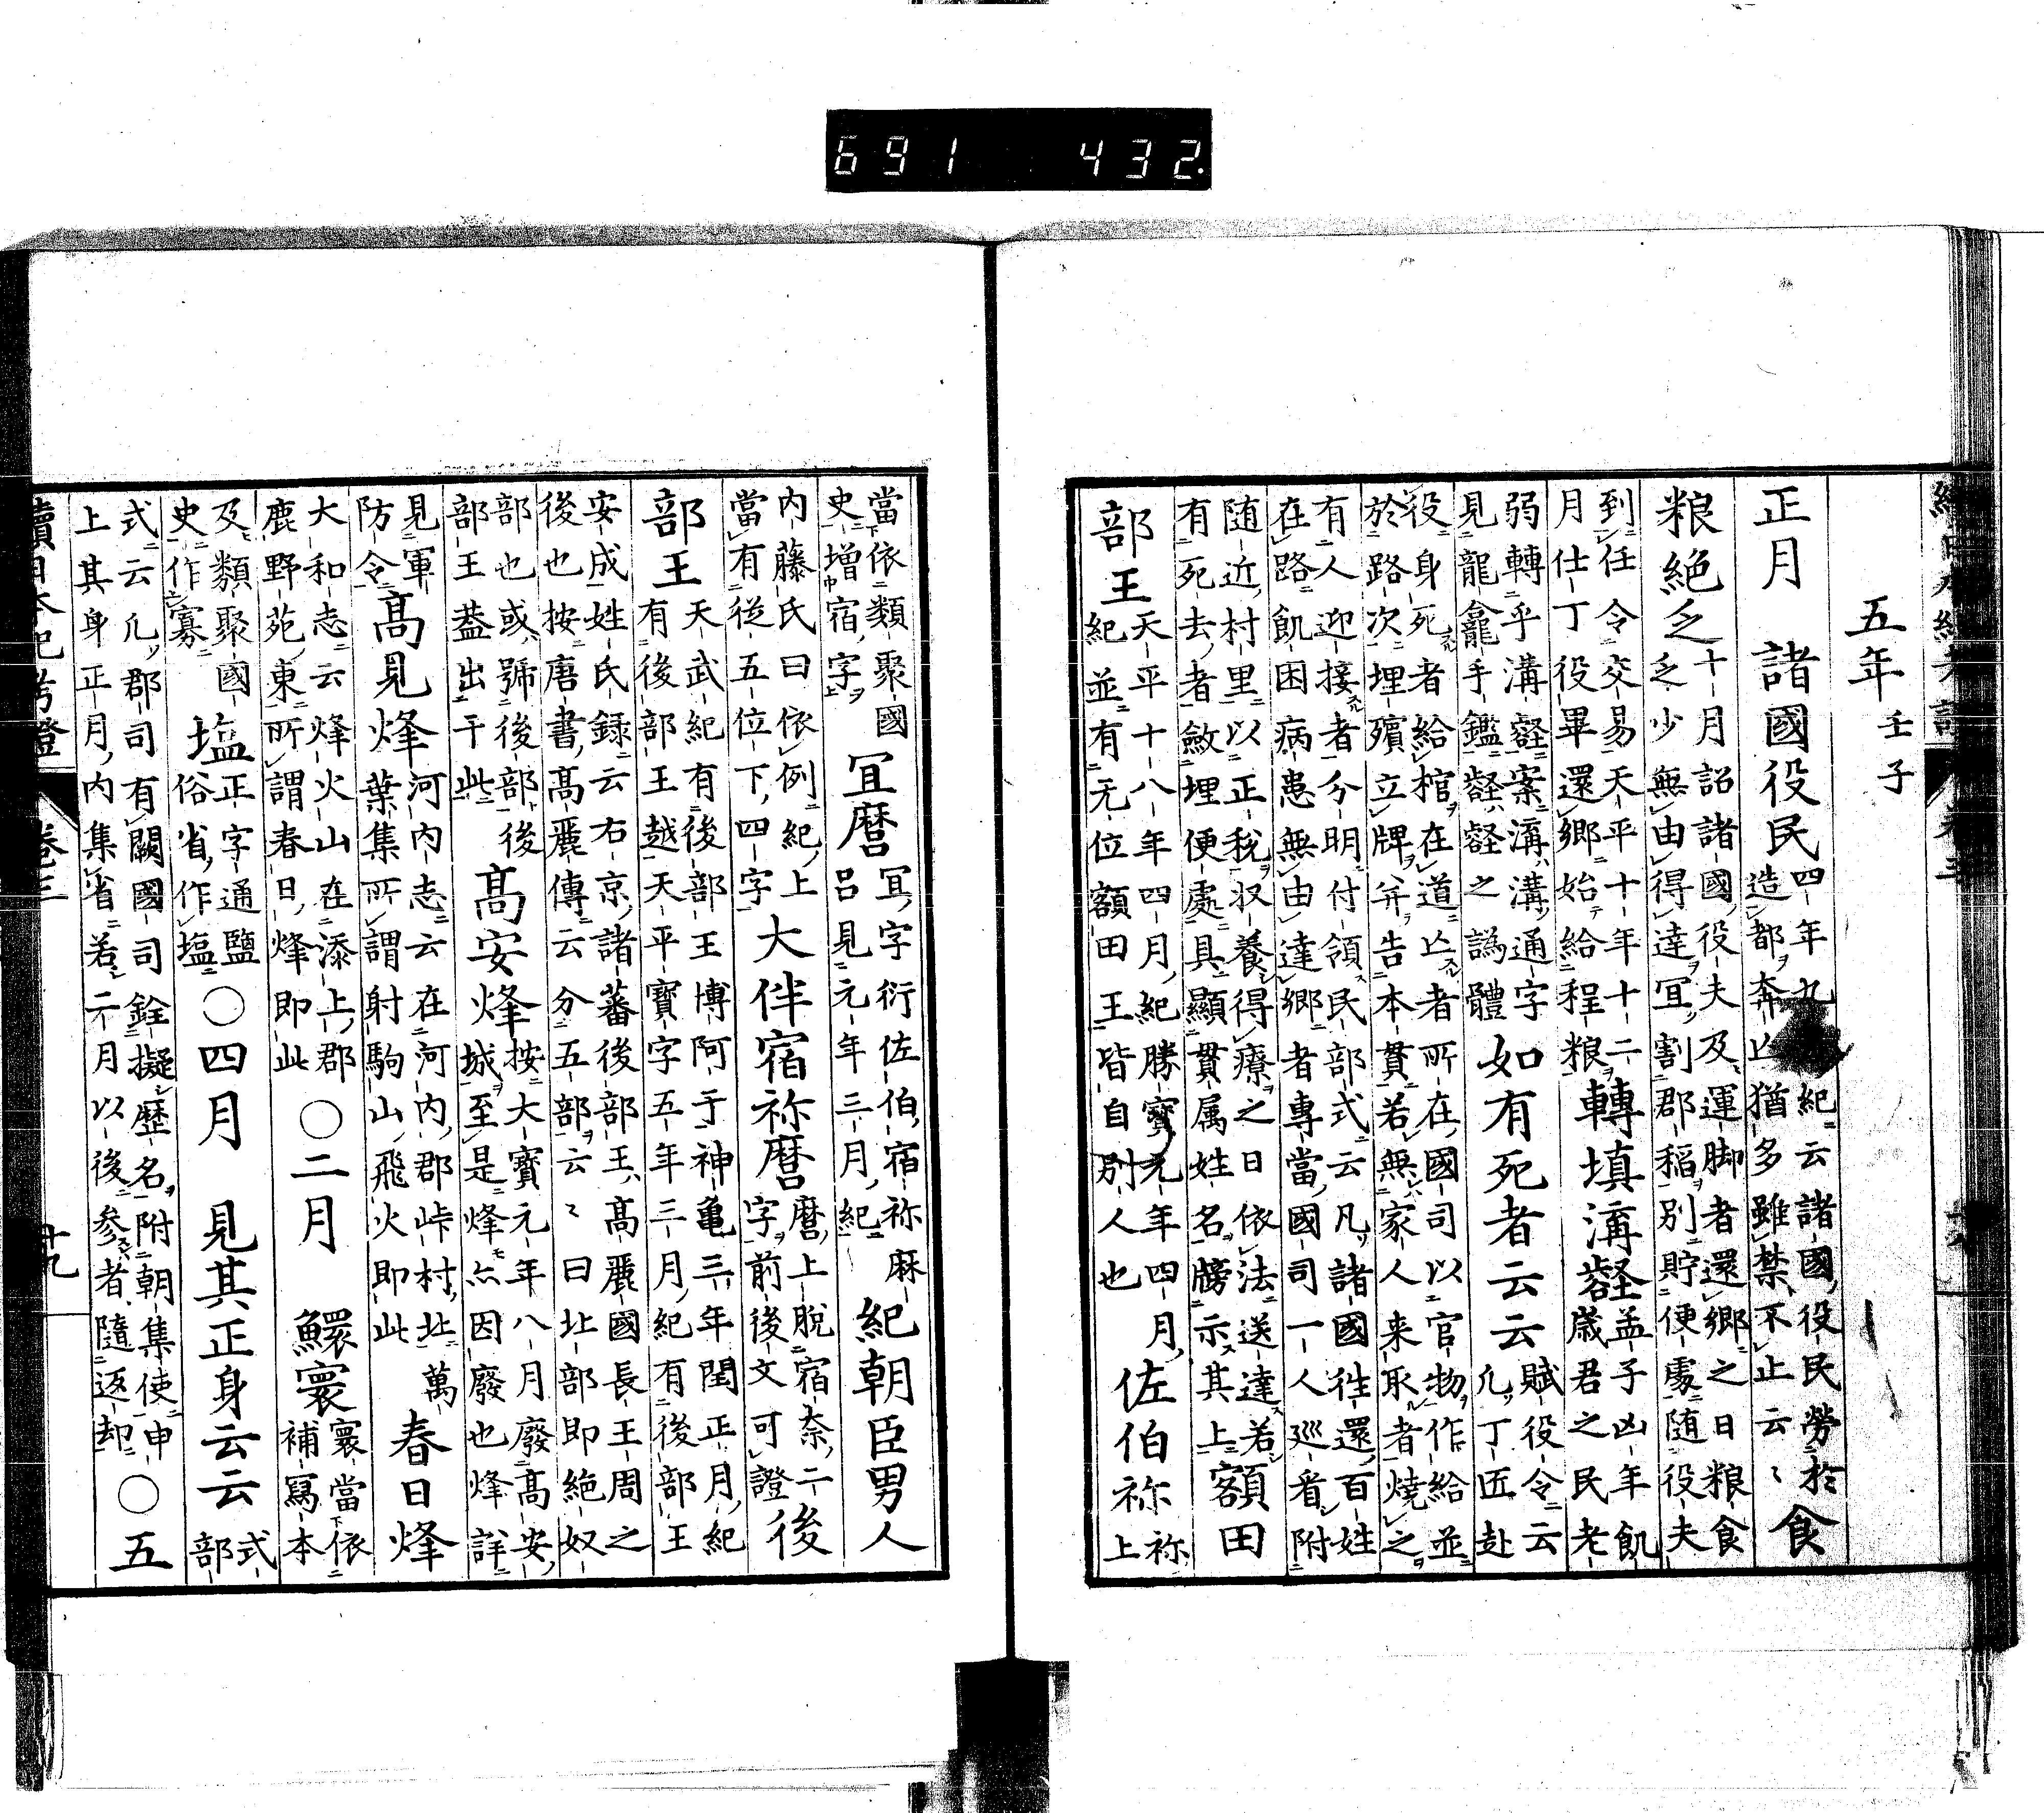 五年 壬子
正月 諸國役民 四年九 紀云諸國役民勞於 造都奔亡猶多雖禁不止云〻 食
粮絶乏 十月詔諸國役夫及運脚者還鄉之日粮食 乏少無由得達冝割郡稻別貯便處随役夫
到任令交易天平十年十二 月仕丁役畢還鄉始給程粮 轉填溝壑 孟子凶年飢 歲君之民老
弱轉乎溝壑案溝溝通字 見龍龕手鑑壑壑之譌體 如有死者云云 賦役令云 凢丁匠赴
役身死者給棺在道亡者所在國司以官物作給並 於路次埋殯立牌并告本貫若無家人来取者燒之
有人迎接者分明付領民部式云凡諸國徃還百姓 在路飢困病患無由達鄉者專當國司一人巡看附
随近村里以正税収養得療之日依法送達若 有死去者斂埋便處具顯貫属姓名牓示其上 額田
部王 天平十八年四月紀勝寳元年四月 紀並有无位額田王皆自別人也 佐伯祢 祢 上
當依類聚國 史增宿字 冝麿 冝字衍佐伯宿祢麻 呂見元年三月紀 紀朝臣男人
内藤氏曰依例紀上 當有從五位下四字 大伴宿祢麿 麿上脱宿奈二 字前後文可證 後
部王 天武紀有後部王博阿于神亀三年閏正月紀 有後部王越天平寶字五年三月紀有後部王
安成姓氏録云右京諸蕃後部王高麗國長王周之 後也按唐書高麗傳云分五部云〻曰北部即絶奴
部也或號後部後 部王葢出于此 高安烽 按大寶元年八月廢高安 城至是烽亦因廢也烽詳
見軍 防令 高見烽 河内志云在河内郡峠村北萬 葉集所謂射駒山飛火即此 春日烽
大和志云烽火山在添上郡 鹿野苑東所謂春日烽即此 〇二月 鰥寡 寡當依 補寫本
及類聚國 史作寡 塩 正字通鹽 俗省作塩 〇四月 見其正身云云 式 部
式云凢郡司有闕國司銓擬歷名附朝集使申 上其身正月内集省若二月以後参者隨返却 〇五
續日本紀考證 卷三 廿九
691 432